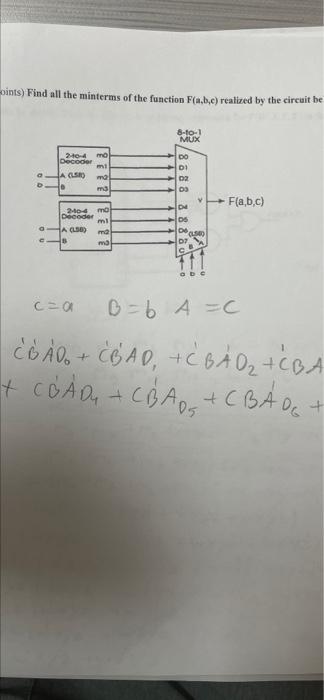 oints) Find all the minterms of the function F(a,b,c) realized by the circuit be
8-to-1
MUX
2-to-4 m0
Decoder m1
a A (LSB) m2
b B m3
D0
D1
D2
D3
2-to-4 m0
Decoder m1
a A (LSB) m2
c B m3
D4
D5
D6 (LSB)
D7 A
C B
Y F(a,b,c)
a b c
C = a B = b A = C
C'B'A'D0 + C'B'AD1 + C'BA'D2 + C'BA
+ CB'A'D4 + CB'AD5 + CBA'D6 +